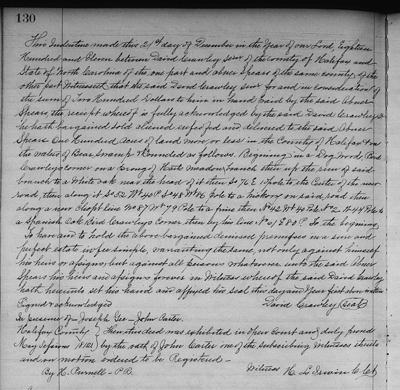 130
This Indenture made this 21st day of December in the Year of our Lord, Eighteen
Hundred and Eleven between David Crawley Senr of the County of Halifax and
State of North Carolina of the one part and Abner Spears of the same county of the
other part Witnesseth, that the said David Crawley Senr for and in consideration of
the sum of Two Hundred Dollars to him in hand paid by the said Abner
Spears, the receipt whereof is fully acknowledged by the said David Crawley
he hath bargained sold aliened enfeofed and delivered to the said Abner
Spears One Hundred acres of land more or less in the County of Halifax on
the waters of Bear Swamp & Bounded as follows. Begining in a Dog wood,
Crawleys corner on a Prong of meadow branch then up the run of said
branch to a white oak near the head of it then So 76 E to the Center of the new
road, then along it
to a hickory on said road then
along a new Chopt line
to a
a Spanish Oak Crawleys Corner then by his line to the begining
To have and to hold the above bargained Demised premises in a sure and
perfect estate in fee simple, warranting the same, not only against himself
his heirs or assigns, but against all persons whatsoever unto the said Abner
Spears his heirs and assigns forever in Witness whereof the said David Crawley
hath hereunto set his hand and affixed his seal the day and Year first above written
Signed & acknowledged David Crawley (Seal)
In presence of Joseph Gee - John Carter
Halifax County } Then this deed was exhibited in open Court and duly proved
May Sessions 1812 } by the oath of John Carter one of the subscribing witnesses thereto
and on motion ordered to be Registered
By H. Burnell - P.R. Witness